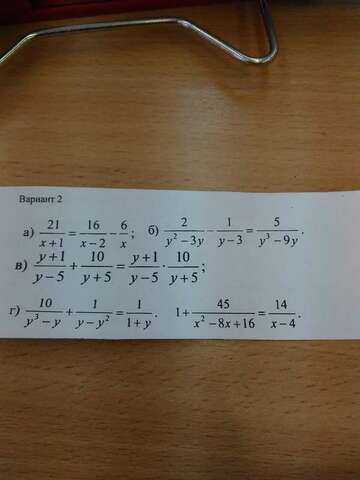 Вариант 2
а) 21/(x+1) = 16/(x−2) − 6/x; б) 2/(y²−3y) − 1/(y−3) = 5/(y³−9y).
в) (y+1)/(y−5) + 10/(y+5) = (y+1)/(y−5) · 10/(y+5);
г) 10/(y³−y) + 1/(y−y²) = 1/(1+y). 1+ 45/(x²−8x+16) = 14/(x−4).